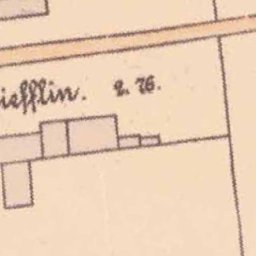 iefflin. 2. 76.